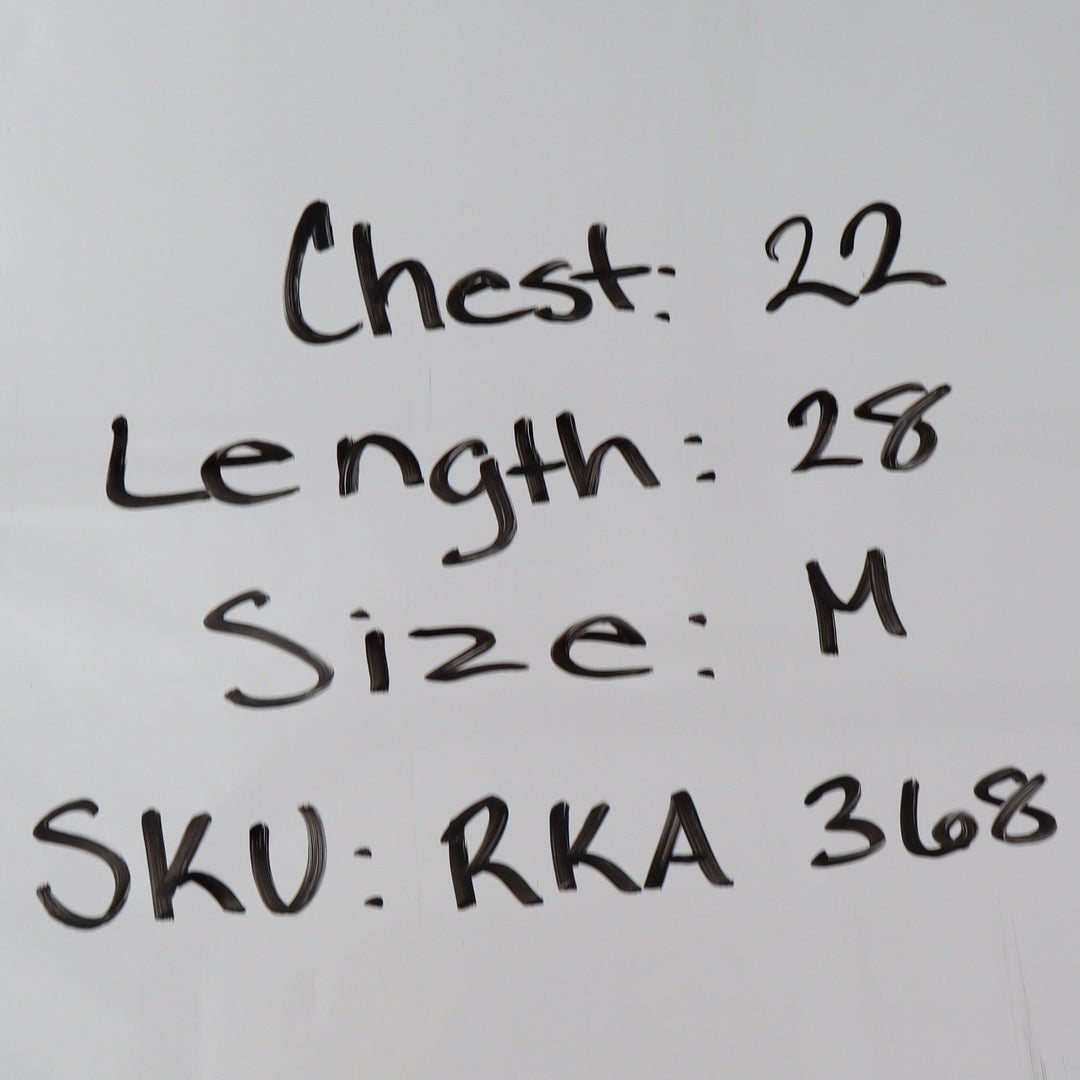 Chest: 22
Length: 28
Size: M
SKU: RKA 368